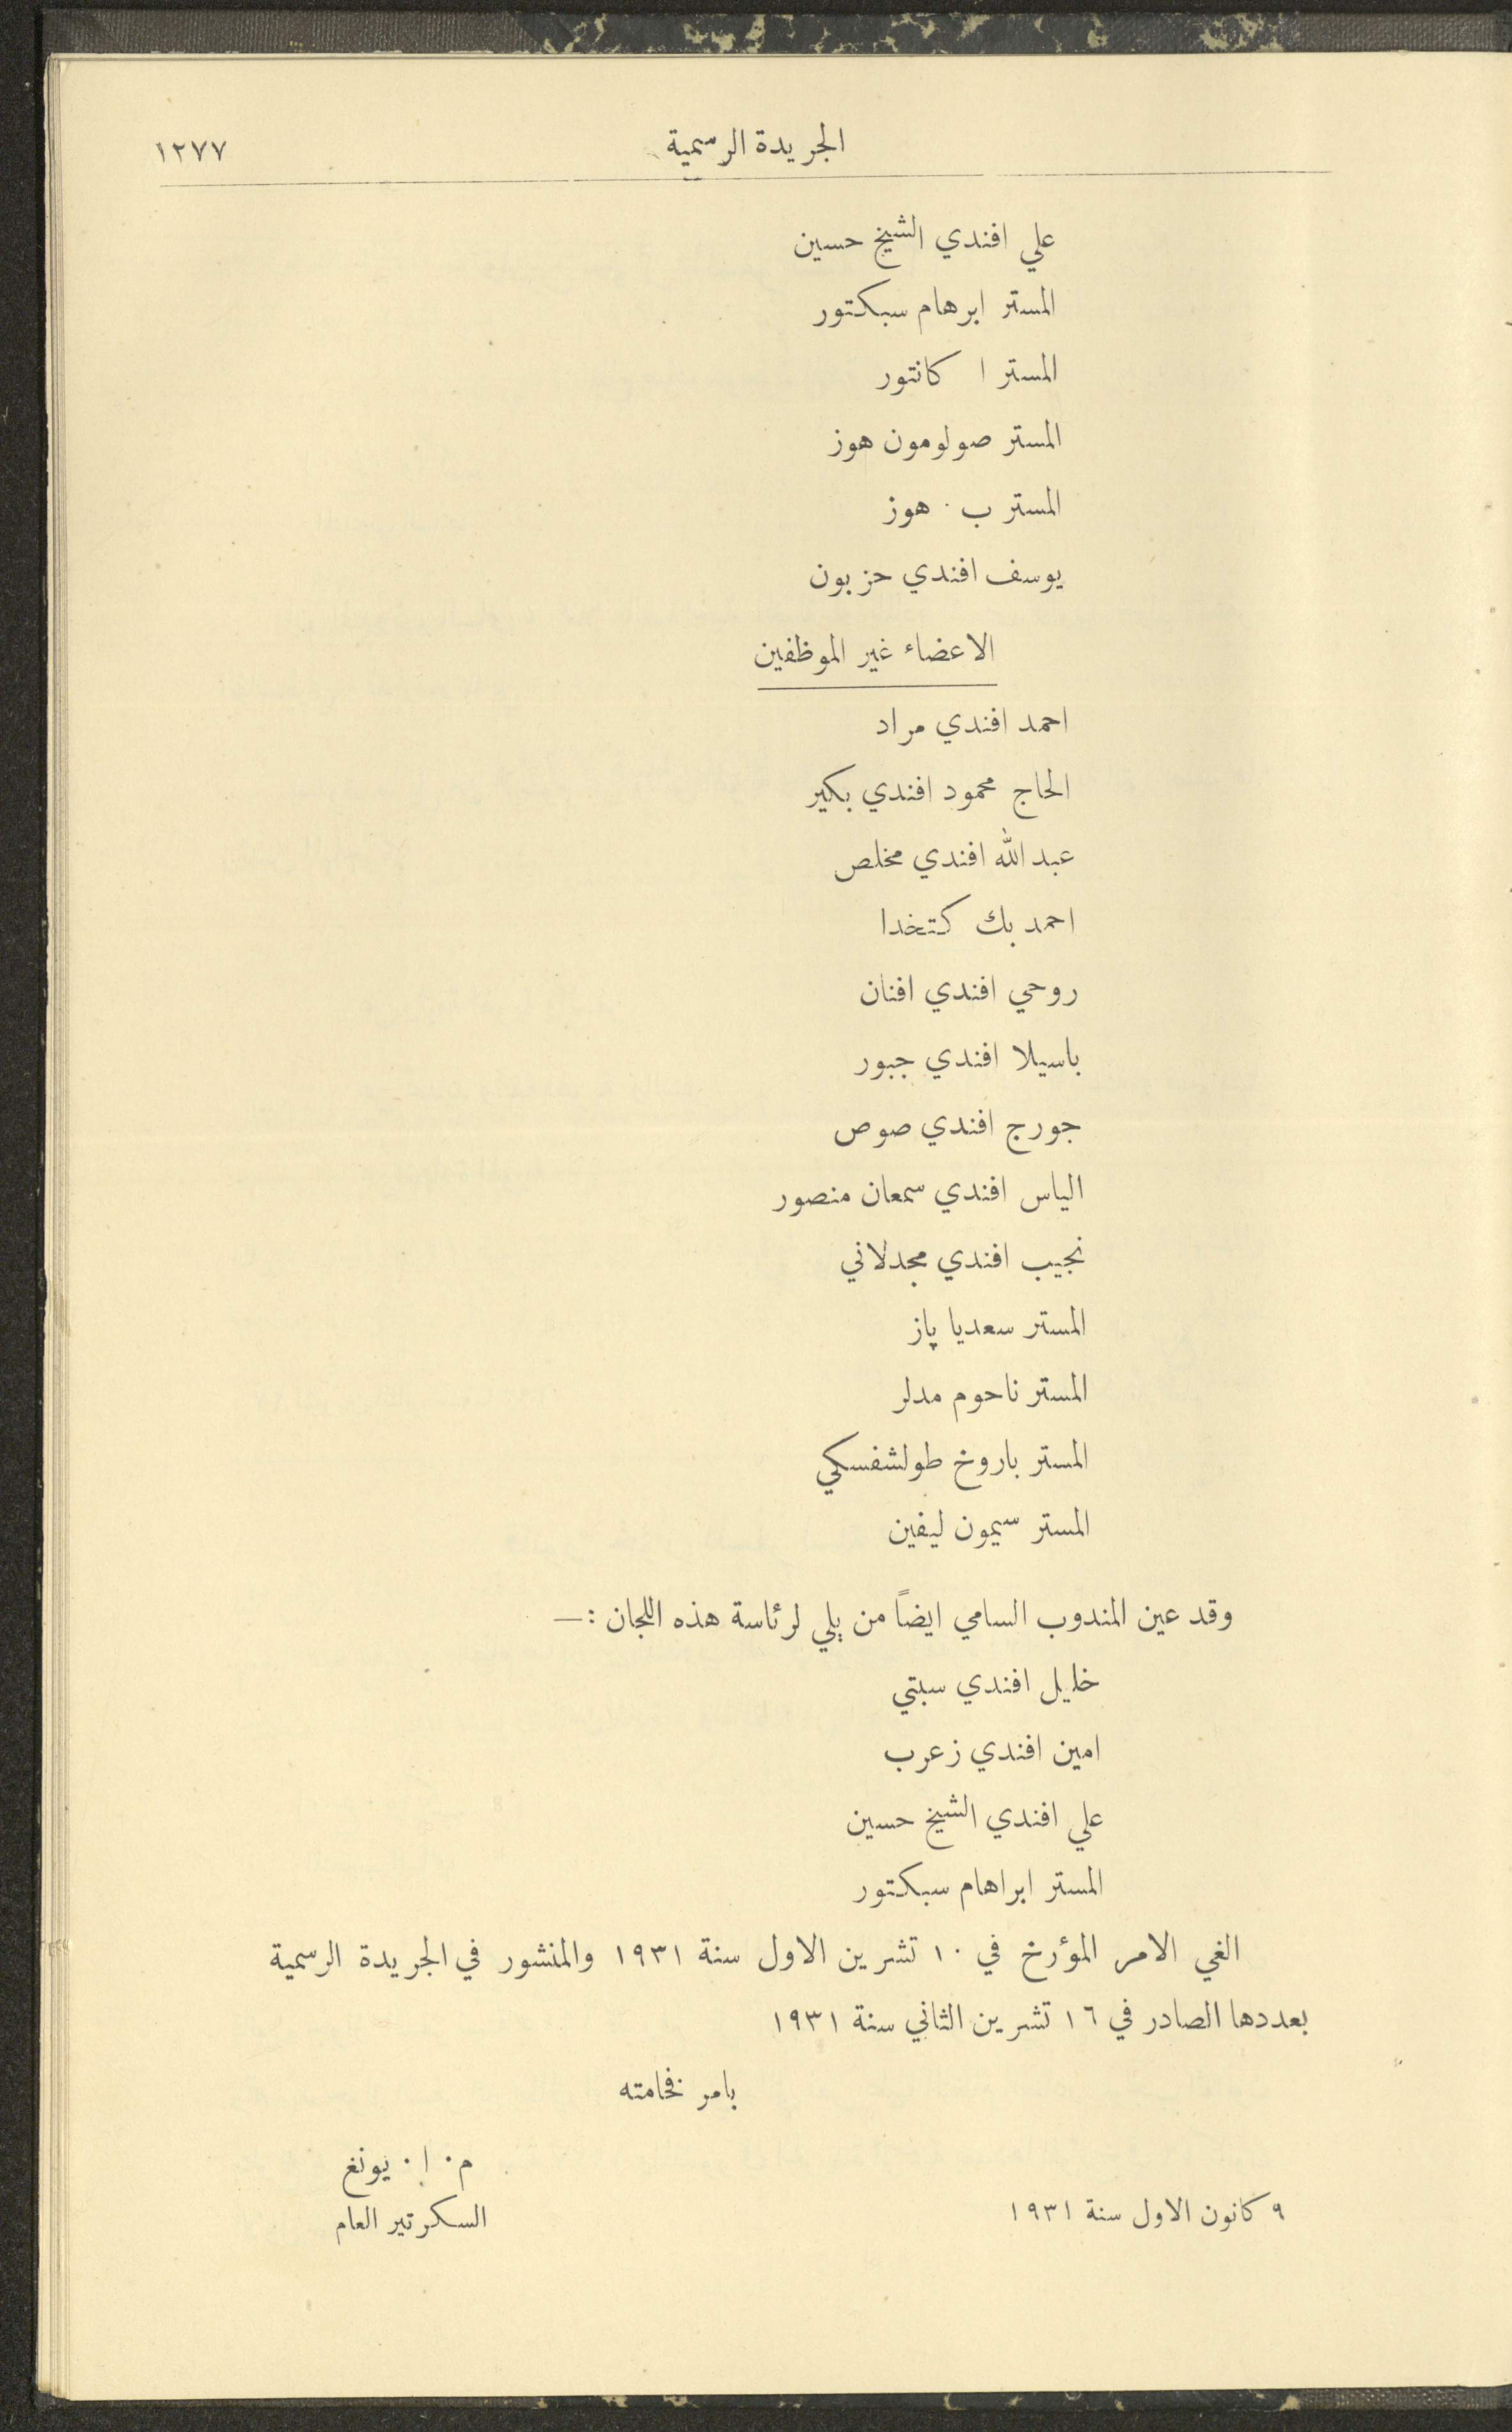 الجريدة الرسمية ١٢٧٧
علي افندي الشيخ حسين
المستر ابرهام سبكتور
المستر ا كانتور
المستر صولومون هوز
المستر ب . هوز
يوسف افندي حزبون
الاعضاء غير الموظفين
احمد افندي مراد
الحاج محمود افندي بكير
عبد الله افندي مخلص
احمد بك كتخدا
روحي افندي افنان
باسيلا افندي جبور
جورج افندي صوص
الياس افندي سمعان منصور
نجيب افندي مجدلاني
المستر سعديا پاز
المستر ناحوم مدلر
المستر باروخ طولشفسكي
المستر سيمون ليفين
وقد عين المندوب السامي ايضاً من يلي لرئاسة هذه اللجان :—
خليل افندي سبتي
امين افندي زعرب
علي افندي الشيخ حسين
المستر ابراهام سبكتور
الغي الامر المؤرخ في ١٠ تشرين الاول سنة ١٩٣١ والمنشور في الجريدة الرسمية
بعددها الصادر في ١٦ تشرين الثاني سنة ١٩٣١
بامر فخامته
م. ا. يونغ
السكرتير العام
٩ كانون الاول سنة ١٩٣١